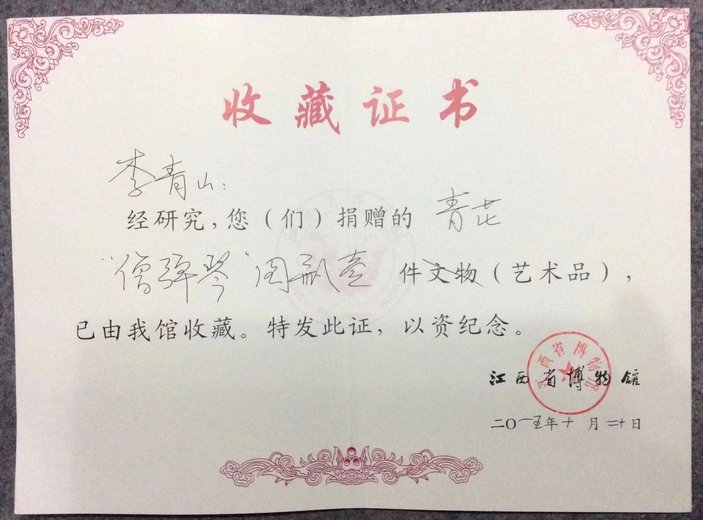 收藏证书
李青山：
经研究，您（们）捐赠的 青花
“僧弹琴”圆瓢壹 件文物（艺术品），
已由我馆收藏。特发此证，以资纪念。
江西省博物馆
江西省博物馆
二〇一五年十月二十日